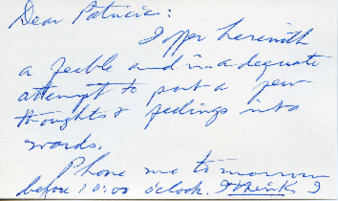 Dear Patricia:
I offer herewith
a feeble and inadequate
attempt to put a few
thoughts & feelings into
words.
Phone me tomorrow
before 10:00 o'clock. I think I